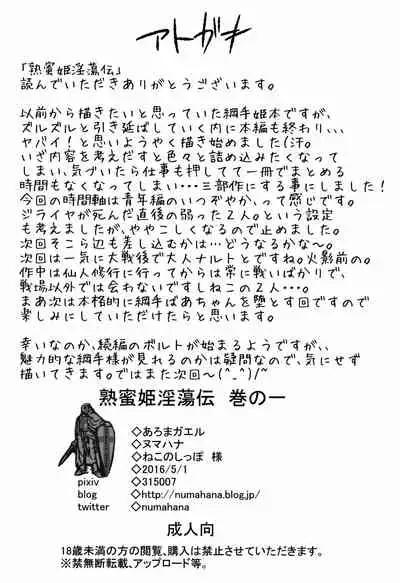 アトガキ
「熟蜜姫淫蕩伝」
読んでいただきありがとうございます。
以前から描きたいと思っていた綱手姫本ですが、
ズルズルと引き延ばしていく内に本編も終わり、、、
ヤバイ！と思いようやく描き始めました(汗。
いざ内容を考えだすと色々と詰め込みたくなって
しまい、気づいたら仕事も押してて一冊でまとめる
時間もなくなってしまい・・・三部作にする事にしました！
今回の時間軸は青年編のいつぞやか、って感じです。
ジライヤが死んだ直後の弱った2人。という設定
も考えましたが、ややこしくなるので止めました。
次回そこら辺も差し込むかは…どうなるかな～。
次回は一気に大戦後で大人ナルトとですね。火影前の。
作中は仙人修行に行ってからは常に戦いばかりで、
戦場以外では会わないですしねこの2人・・・。
まあ次は本格的に綱手ばあちゃんを堕とす回ですので
楽しみにしていただけたらと思います。
幸いなのか、続編のボルトが始まるようですが、、
魅力的な綱手様が見れるのかは疑問なので、気にせず
描いてきます。ではまた次回～(^_^)/~
熟蜜姫淫蕩伝 巻の一
◇あろまガエル
◇ヌマハナ
◇ねこのしっぽ 様
◇2016/5/1
pixiv ◇315007
blog ◇http://numahana.blog.jp/
twitter ◇numahana
成人向
18歳未満の方の閲覧、購入は禁止させていただきます。
※禁無断転載、アップロード等。